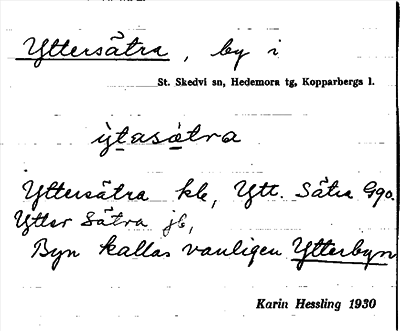 Yttersätra, by i
St. Skedvi sn, Hedemora tg, Kopparbergs l.
ỳtasätra
Yttersätra kk, Ytt. Sätra Ggo.
Ytter Sätra jb,
Byn kallas vanligen Ytterbyn
Karin Hessling 1930